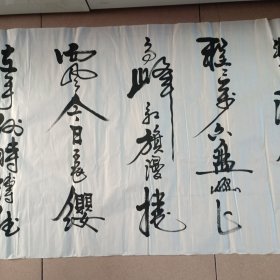 程二万六盘山上
高峰红旗漫捲
西风今日长缨
在手何时缚住